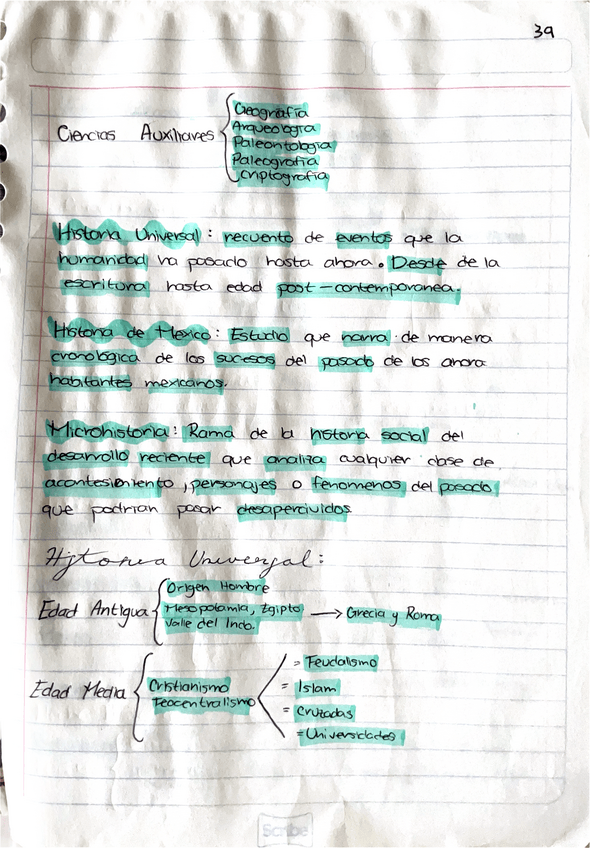 39
Ciencias Auxiliares
Geografía
Arqueologia
Paleontologia
Paleografia
Criptografia
Historia Universal: recuento de eventos que la
humanidad ha pasado hasta ahora. Desde de la
escritura hasta edad post-contemporanea.
Historia de Mexico: Estudio que narra de manera
cronologica de los sucesos del pasado de los ahora
habitantes mexicanos.
Microhistoria: Rama de la historia social del
desarrollo reciente que analiza cualquier clase de
acontesimiento, personajes o fenomenos del pasado
que podrian pasar desapercividos.
Historia Universal:
Edad Antigua
Origen Hombre
Mesopotamia, Egipto
Valle del Indo.
→ Grecia y Roma
Edad Media
Cristianismo
Teocentralismo
= Feudalismo
= Islam
= Cruzadas
= Universidades
Scribe